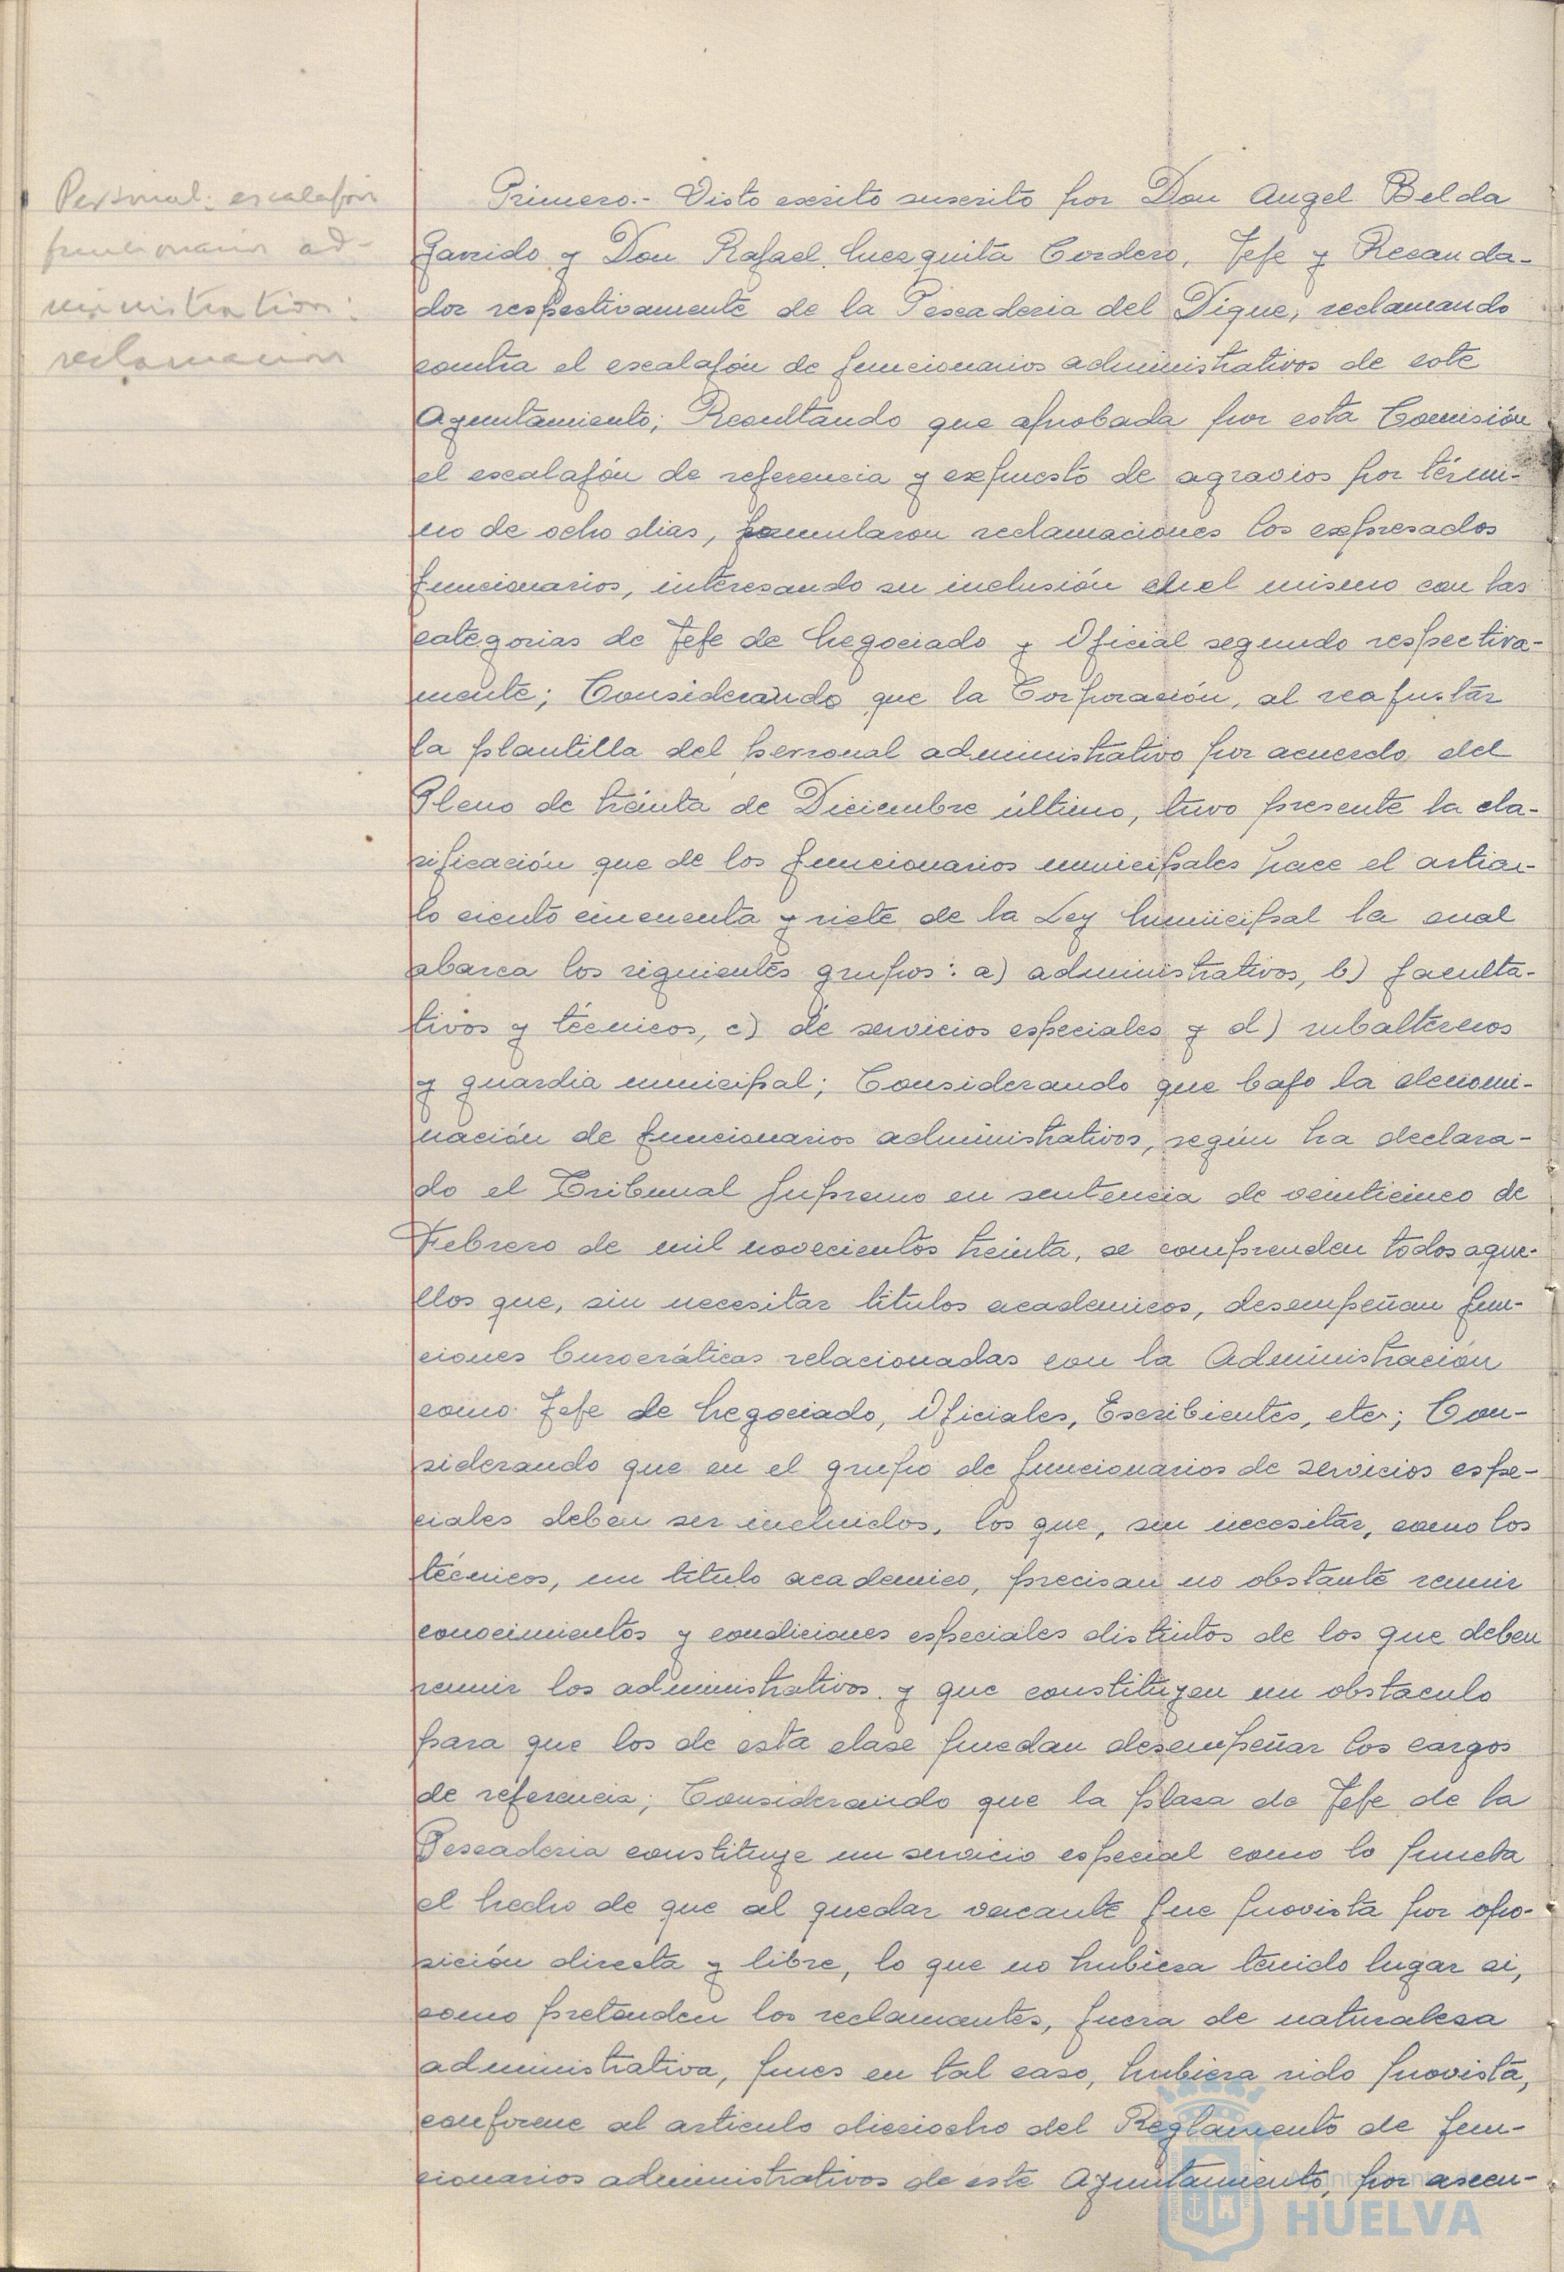 Personal: escalafón
funcionarios ad-
ministrativos:
reclamacion
Primero.- Visto escrito suscrito por Don Angel Belda
Garrido y Don Rafael Mezquita Cordero, Jefe y Recauda-
dor respectivamente de la Pescaderia del Dique, reclamando
contra el escalafón de funcionarios administrativos de este
Ayuntamiento; Resultando que aprobada por esta Comisión
el escalafón de referencia y expuesto de agravios por térmi-
no de ocho dias, formularon reclamaciones los expresados
funcionarios, interesando su inclusión en el mismo con las
categorias de Jefe de Negociado y Oficial segundo respectiva-
mente; Considerando que la Corporación, al reajustar
la plantilla del personal administrativo por acuerdo del
Pleno de treinta de Diciembre último, tuvo presente la cla-
sificación que de los funcionarios municipales hace el articu-
lo ciento cincuenta y siete de la Ley Municipal la cual
abarca los siguientes grupos: a) administrativos, b) faculta-
tivos y técnicos, c) de servicios especiales y d) subalternos
y guardia municipal; Considerando que bajo la denomi-
nación de funcionarios administrativos, según ha declara-
do el Tribunal Supremo en sentencia de veinticinco de
Febrero de mil novecientos treinta, se comprenden todos aque-
llos que, sin necesitar titulos academicos, desempeñan fun-
ciones burocráticas relacionadas con la Administración
como Jefe de Negociado, Oficiales, Escribientes, etc; Con-
siderando que en el grupo de funcionarios de servicios espe-
ciales deben ser incluidos, los que, sin necesitar, como los
técnicos, un titulo academico, precisan no obstante reunir
conocimientos y condiciones especiales distintos de los que deben
reunir los administrativos y que constituyen un obstaculo
para que los de esta clase puedan desempeñar los cargos
de referencia; Considerando que la plaza de Jefe de la
Pescaderia constituye un servicio especial como lo prueba
el hecho de que al quedar vacante fue provista por opo-
sición directa y libre, lo que no hubiera tenido lugar si,
como pretenden los reclamantes, fuera de naturaleza
administrativa, pues en tal caso, hubiera sido provista,
conforme al articulo dieciocho del Reglamento de fun-
cionarios administrativos de este Ayuntamiento, por ascen-
Ayuntamiento de
HUELVA